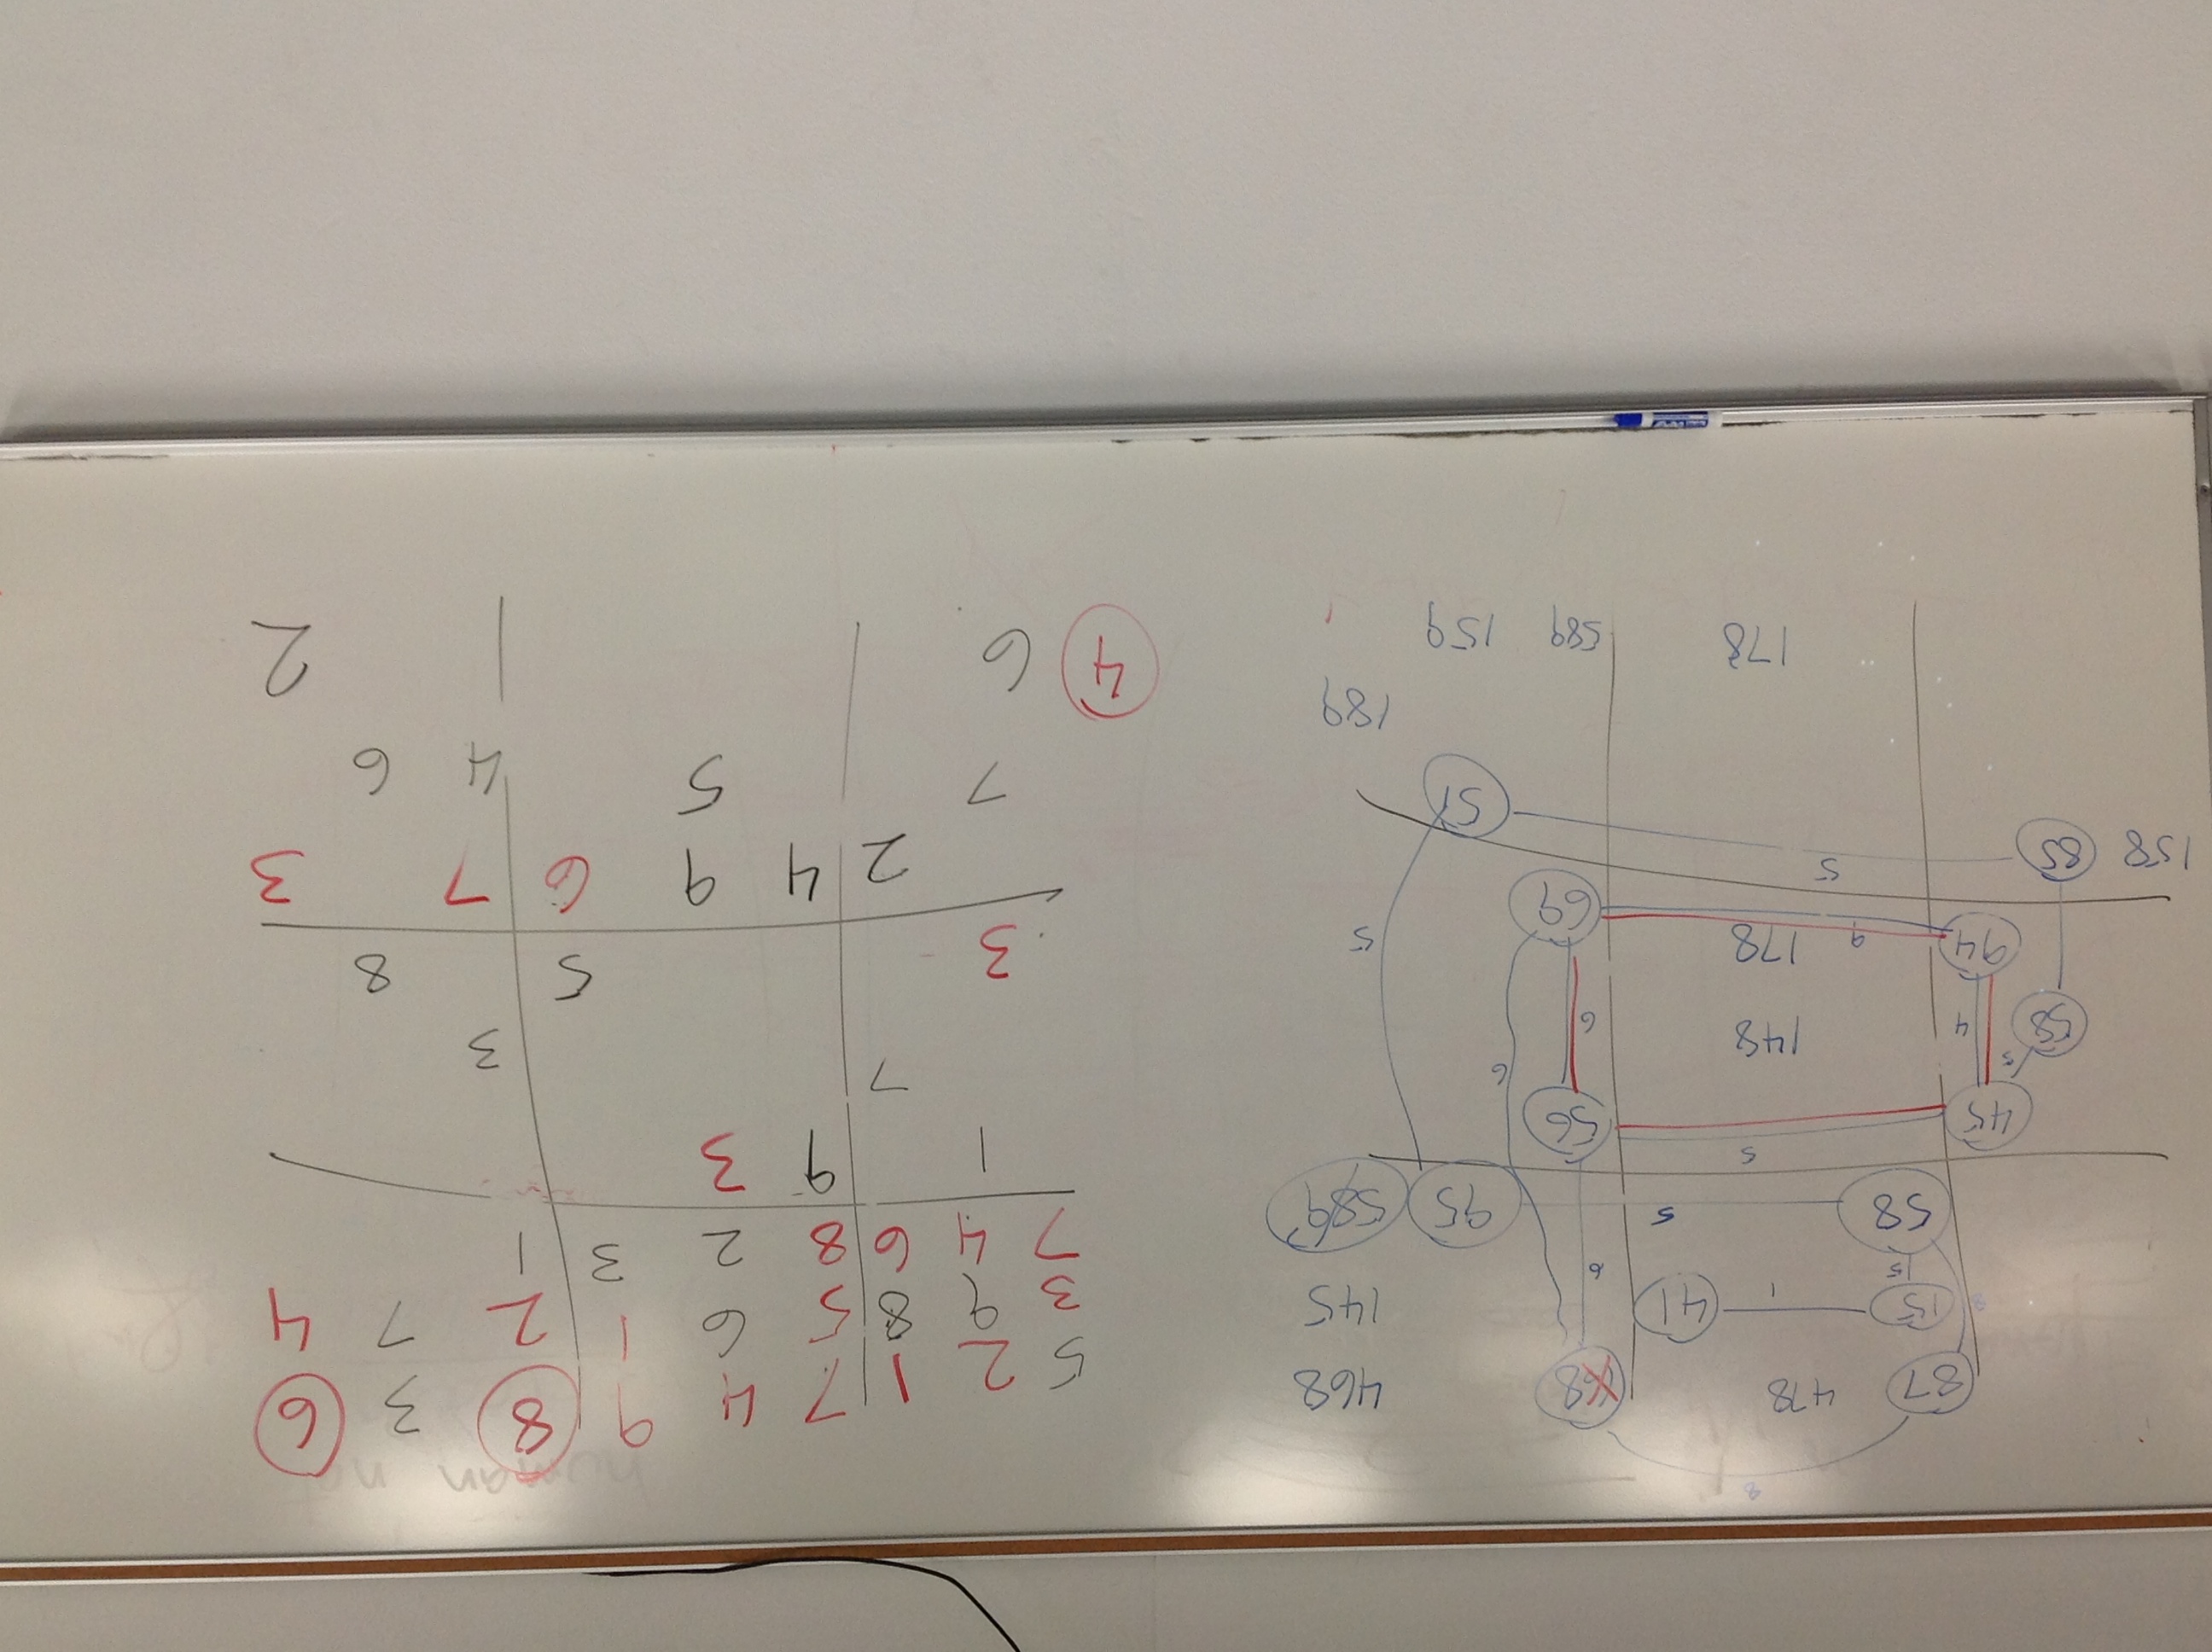 8
87 478 68 468
8 15 1 41 145
15 6
58 5 95 589
45 5 56
5 58 4 148 6 6
94 9 178 69 5
158 85 5 51
189
178 589 159
human no
5 2 1 7 4 9 8 3 6
3 9 8 5 6 1 2 7 4
7 4 6 8 2 3 1
1 9 3
7 3
3 5 8
2 4 9 6 7 3
7 5 4 6
4 6 2